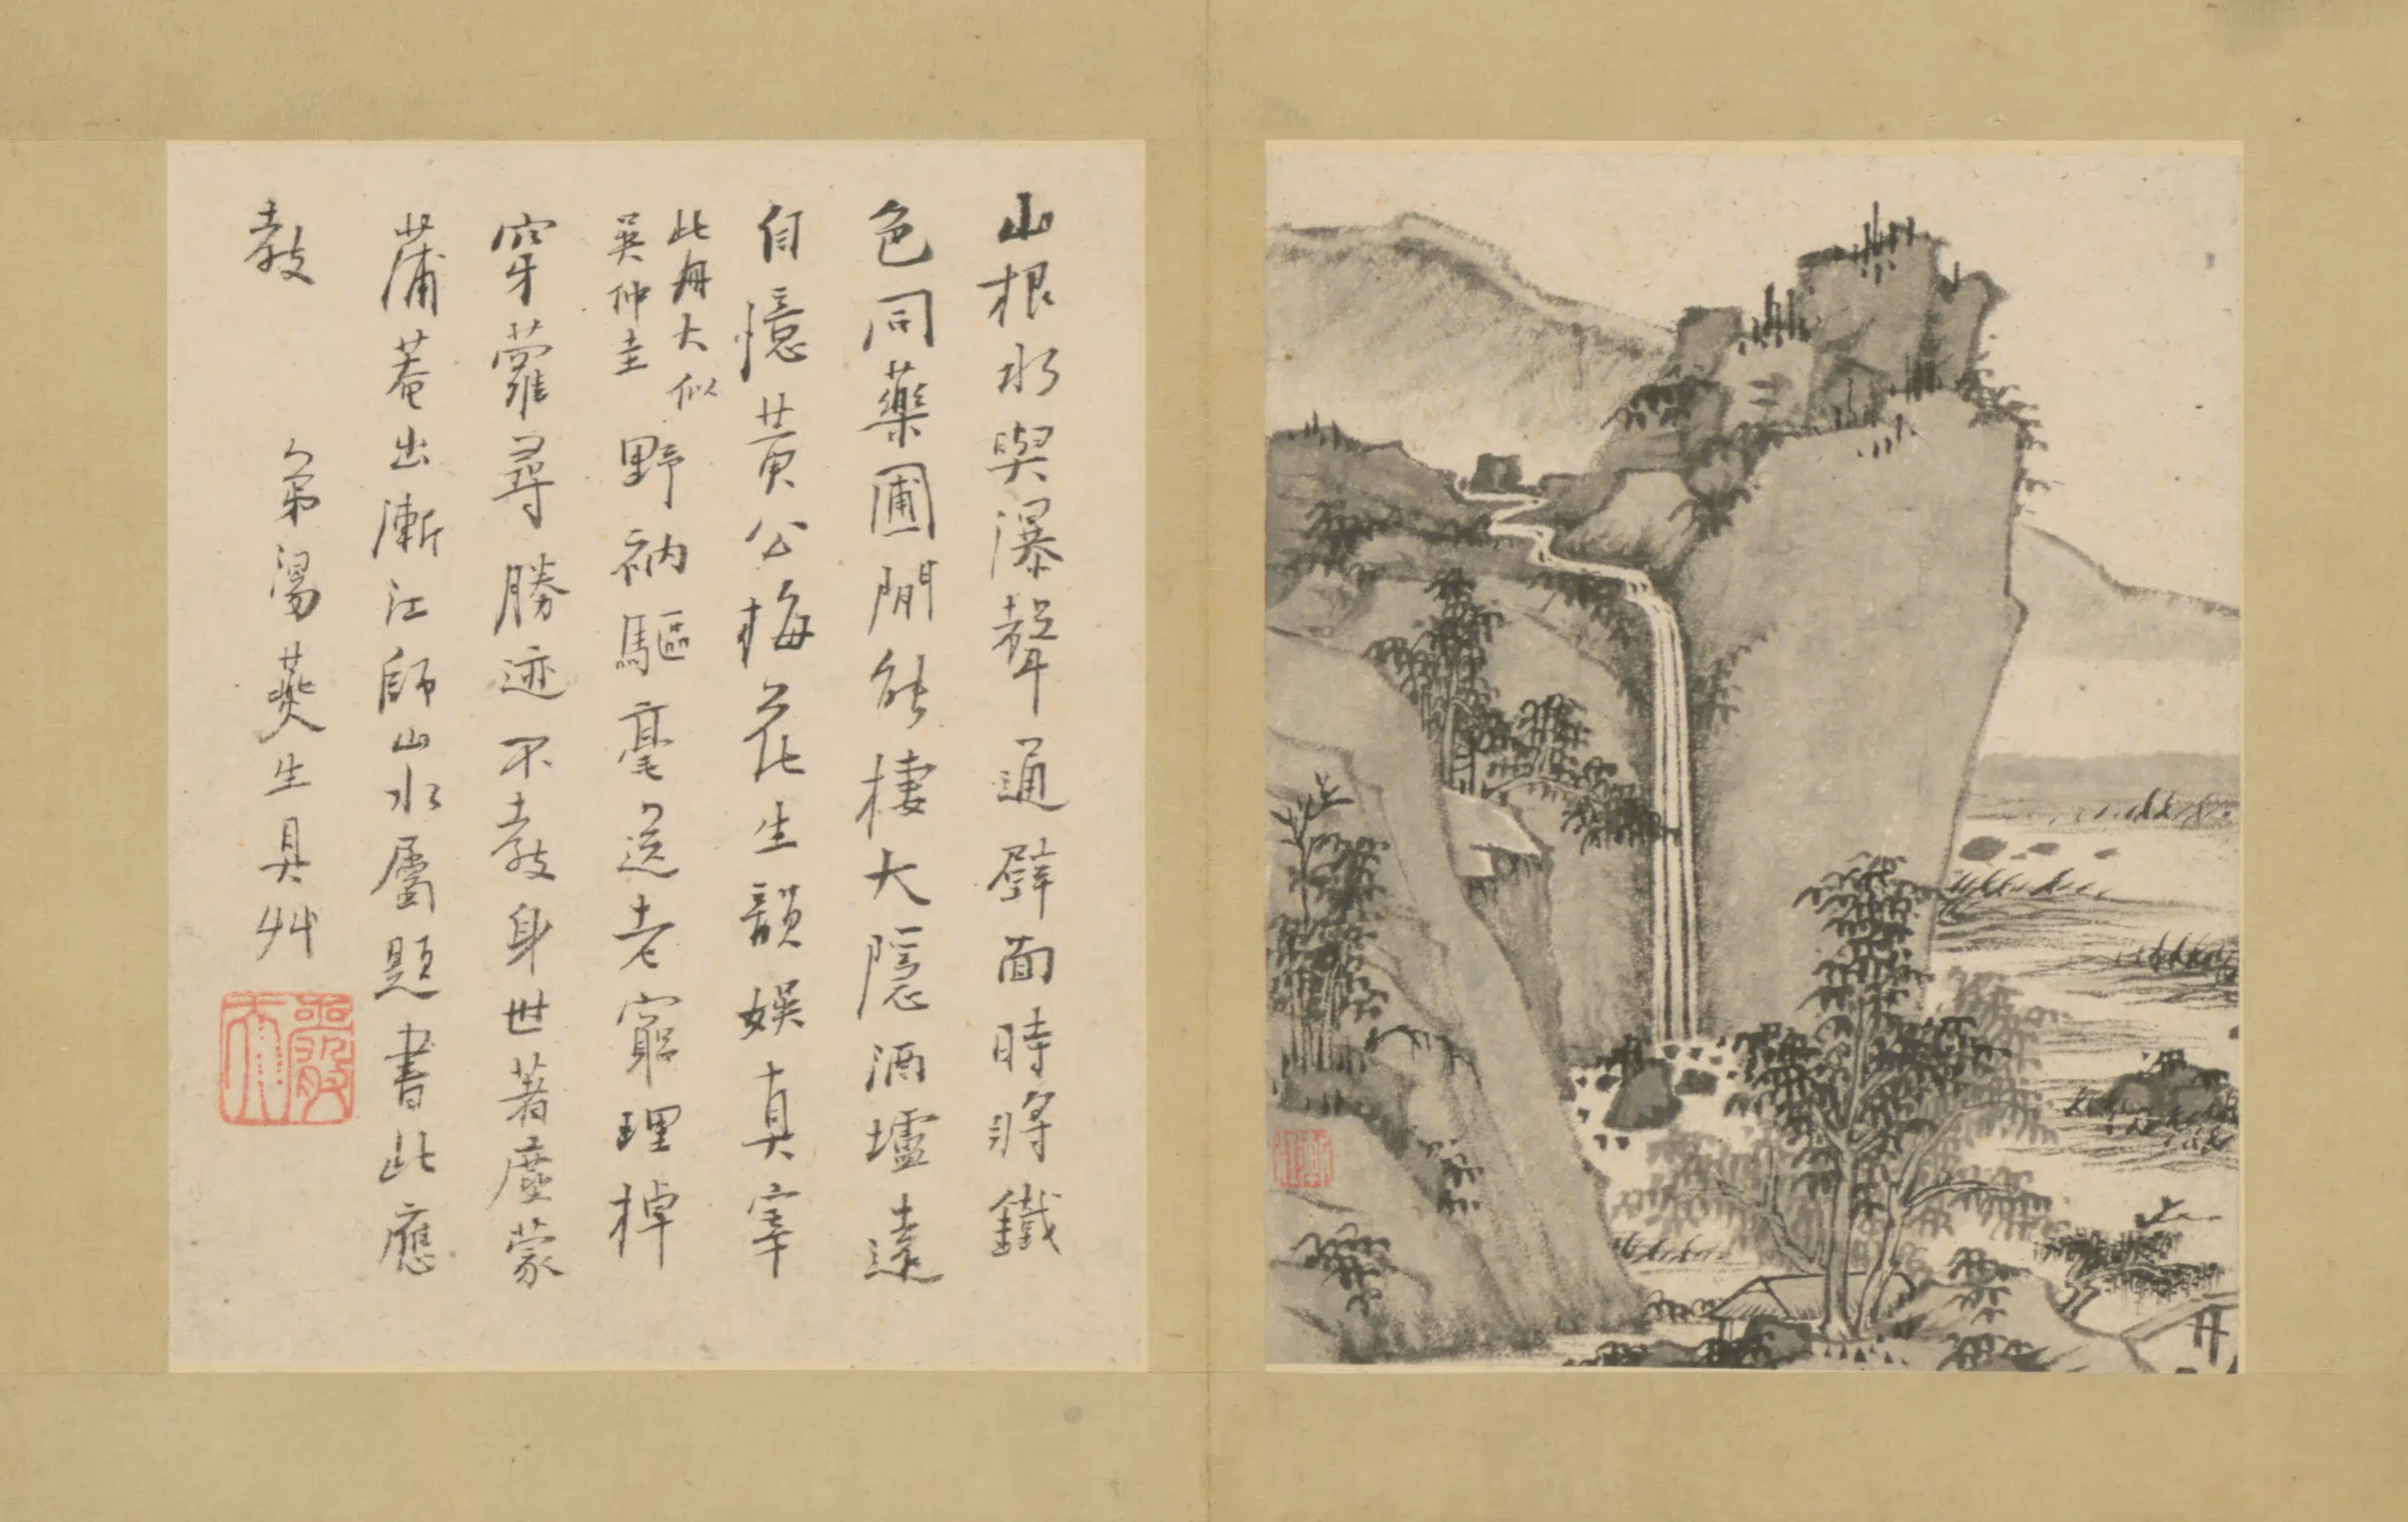 山根水與瀑聲通壁面時將鐵
色同藥圃閒能棲大隱酒壚遠
自憶黃公梅花生韻娛真宰
此冊大似
吳仲圭
野衲驅毫送老窮理棹
穿蘿尋勝迹不教身世著塵蒙
蒲菴出漸江師山水屬題書此應
教
弟湯燕生具艸